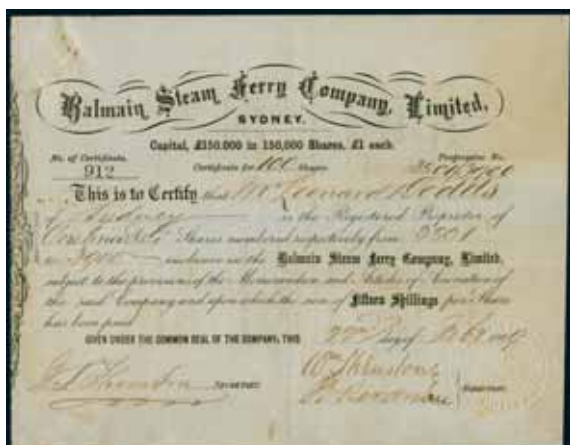 Balmain Steam Ferry Company, Limited.
SYDNEY.
Capital, £150.000 in 150,000 Shares. £1 each.
No. of Certificate. Certificate for 100 Shares. Progressive No.
912
This is to Certify that Mr Leonard Dodds
of Sydney is the Registered Proprietor of
One hundred Shares numbered respectively from
to 3000 inclusive in the Balmain Steam Ferry Company, Limited.
subject to the provisions of the Memorandum and Articles of Association of
the said Company and upon which the sum of Fifteen Shillings per Share
has been paid
GIVEN UNDER THE COMMON SEAL OF THE COMPANY, THIS day of
SECRETARY.